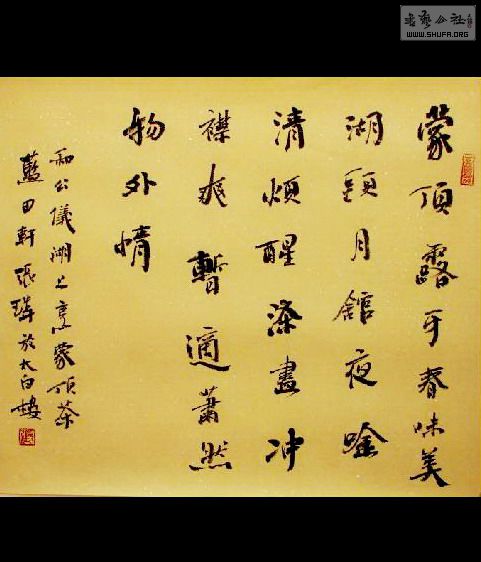 書藝公社
WWW.SHUFA.ORG
蒙頂露牙春味美
湖頭月館夜唫
清煩醒滌盡冲
襟爽暫適蕭然
物外情
和公儀湖上烹蒙頂茶
藍田軒張於太白樓